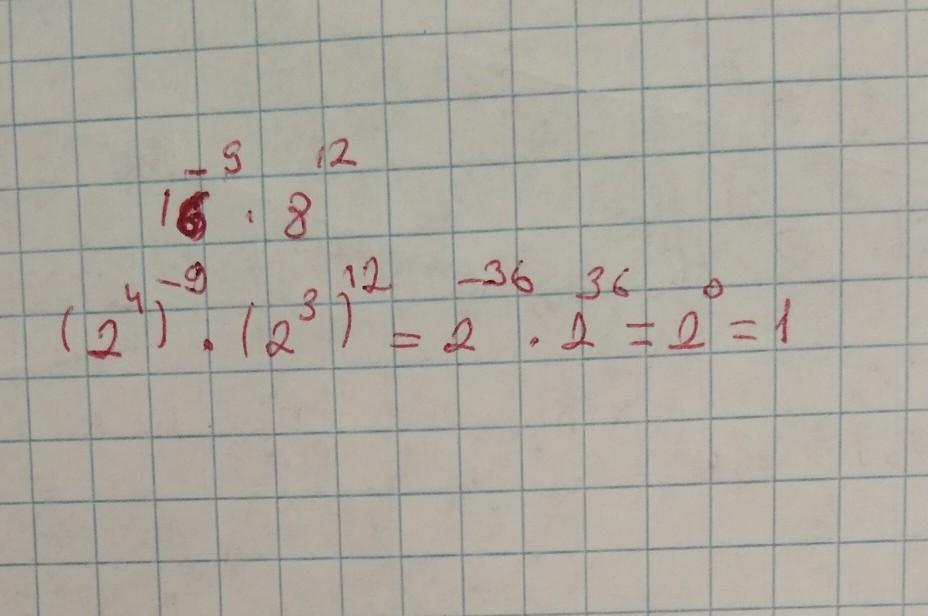 16⁻⁹ · 8¹²
(2⁴)⁻⁹ · (2³)¹² = 2⁻³⁶ · 2³⁶ = 2⁰ = 1